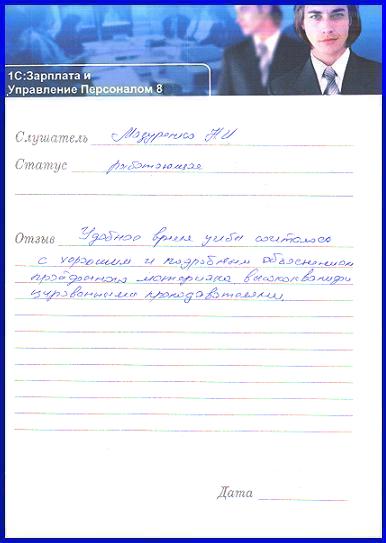 1С:Зарплата и
Управление Персоналом 8
Слушатель Мазуренко Н И
Статус работающая
Отзыв Удобное время учебы сочеталось
с хорошим и подробным объяснением
пройденного материала высококвалифи
цированными преподавателями
Дата